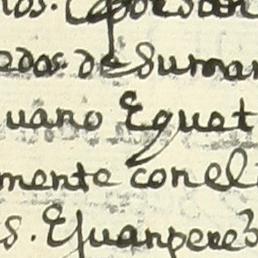 edos. de Suman
uano Eguat
mente con el
s. E Juan pere